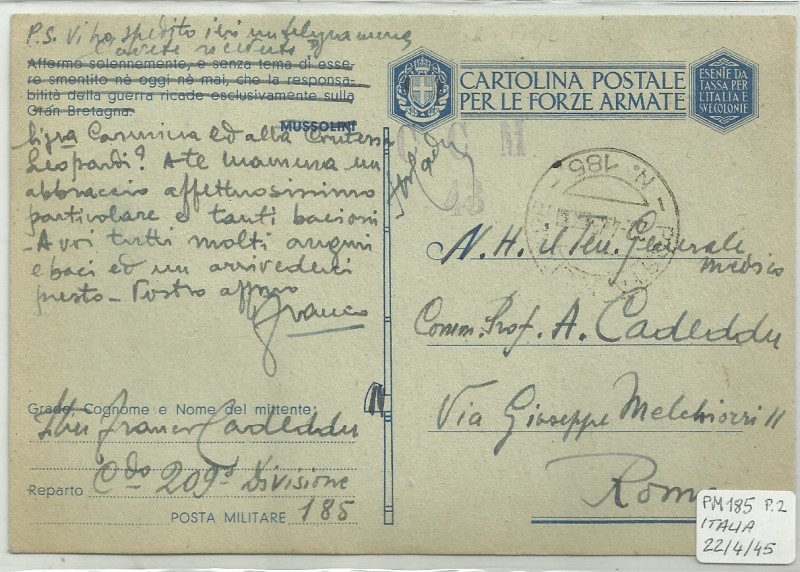 P.S. Vi ho spedito ieri un telegramma
l'avete ricevuto?
Affermo solennemente, e senza tema di esse-
re smentito nè oggi nè mai, che la responsa-
bilità della guerra ricade esclusivamente sulla
Gran Bretagna.
MUSSOLINI
Sig.ra Carmina ed alla Contessa
Leopardi? A te mamma un
abbraccio affettuosissimo
particolare e tanti bacioni
- A voi tutti molti auguri
e baci ed un arrivederci
presto - Vostro aff.mo
Franco
Grado, Cognome e Nome del mittente:
Franco Cadeddu
Reparto C.do 209a Divisione
POSTA MILITARE 185
CARTOLINA POSTALE
PER LE FORZE ARMATE
ESENTE DA
TASSA PER
L'ITALIA E
SUE COLONIE
C C M
N. 185
N. H. il Ten. Generale
medico
Comm. Prof. A. Cadeddu
Via Giuseppe Melchiorri 11
Roma
PM 185 P.2
ITALIA
22/4/45